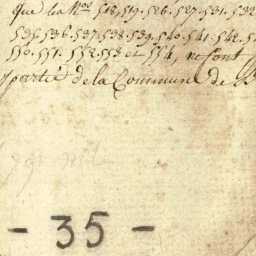 que les Nos 518. 519. 526. 527. 531. 532
535. 536. 537. 538. 539. 540. 541. 542.
550. 551. 552. 553 et 554, ne font
partie de la Commune de
- 35 -